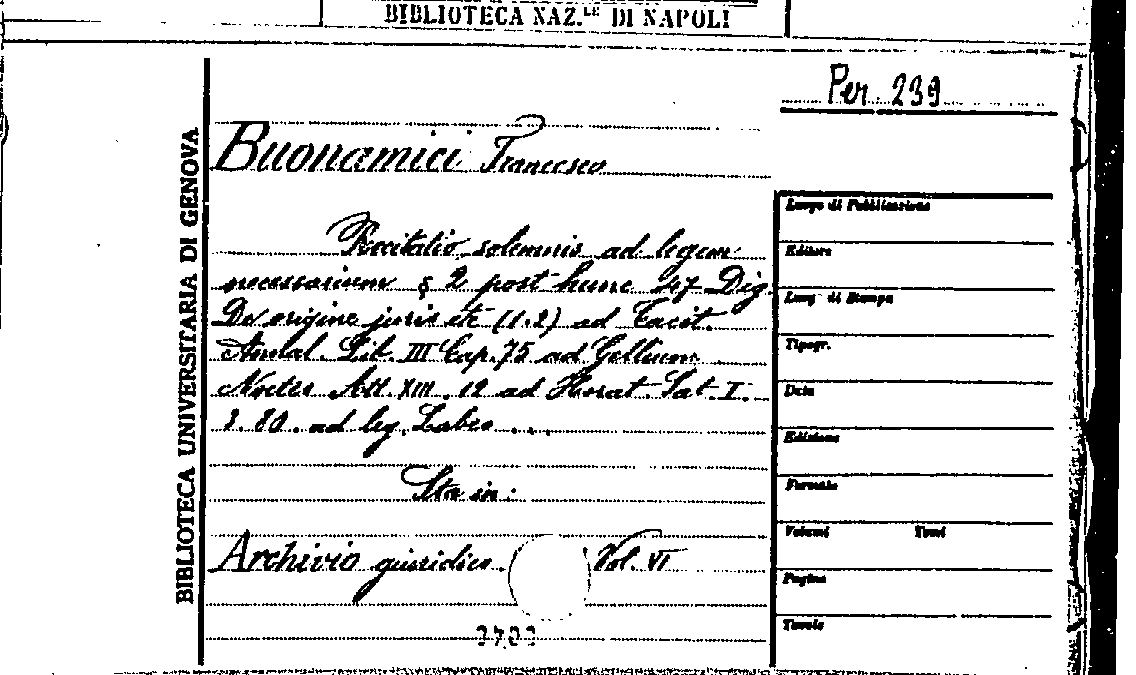 BIBLIOTECA NAZ.LE DI NAPOLI
Per. 239
BIBLIOTECA UNIVERSITARIA DI GENOVA
Buonamici Francesco
Recitatio solemnis ad legem
necessarium § 2 post hunc 47 Dig.
De origine juris etc (1.2) ad Tacit.
Annal. Lib. III Cap. 75 ad Gellium
Noctes Att. XIII. 12 ad Horat. Sat. I.
3. 80. ad leg. Labeo ...
Sta in:
Archivio giuridico. Vol. VI
Luogo di Pubblicazione
Editore
Luog di Stampa
Tipogr.
Data
Edizione
Formato
Volumi Tomi
Pagine
Tavole